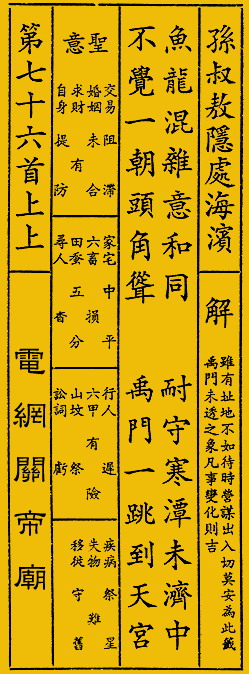 孫叔敖隱處海濱
解
雖有址地不如待時營謀出入切莫安為此籤
禹門未透之象凡事變化則吉
魚龍混雜意和同
耐守寒潭未濟中
不覺一朝頭角聳
禹門一跳到天宮
聖意
交易 阻滯
婚姻 未合
求財 有
自身 提防
家宅 中平
六畜 損
田蚕 五分
尋人 杳
行人 遲
六甲 有險
山坟 祭
訟詞 虧
疾病 祭星
失物 難
移徙 守舊
第七十六首上上
電網關帝廟